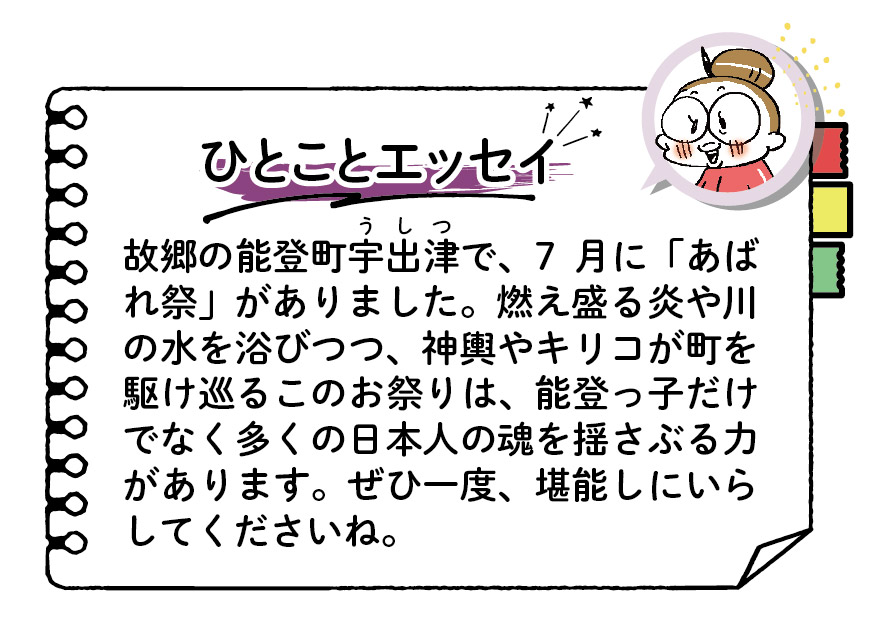 ひとことエッセイ
うしつ
故郷の能登町宇出津で、7 月に「あば
れ祭」がありました。燃え盛る炎や川
の水を浴びつつ、神輿やキリコが町を
駆け巡るこのお祭りは、能登っ子だけ
でなく多くの日本人の魂を揺さぶる力
があります。ぜひ一度、堪能しにいら
してくださいね。